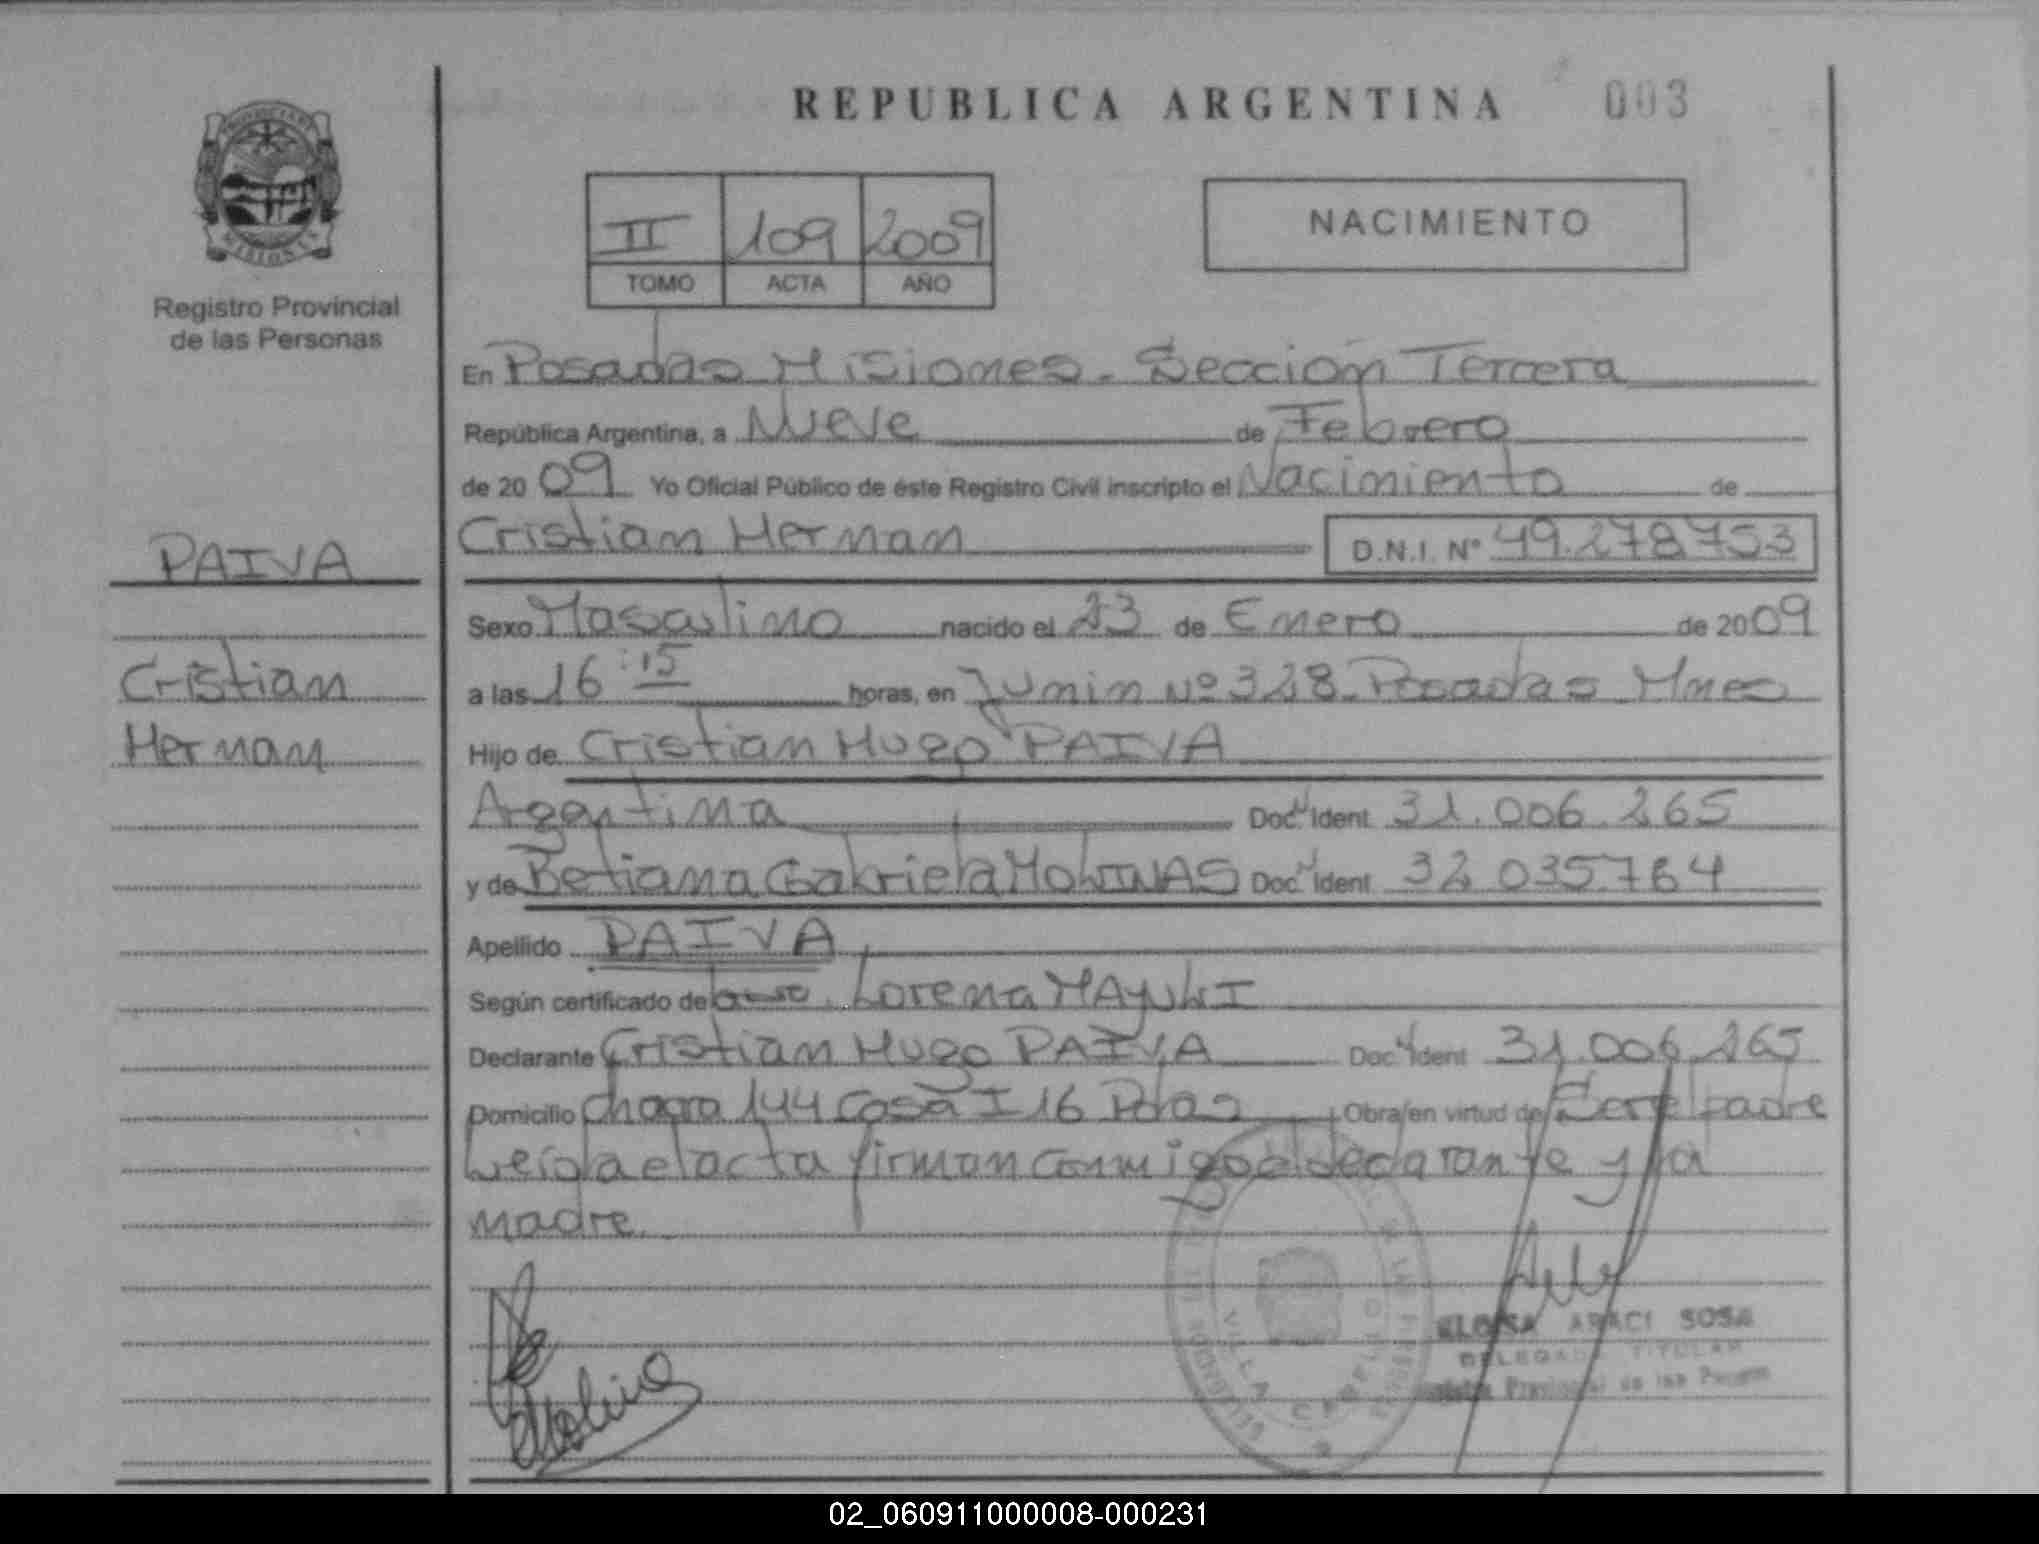 REPUBLICA ARGENTINA 003
PROVINCIA
MISIONES
Registro Provincial
de las Personas
II 109 2009
TOMO ACTA AÑO
NACIMIENTO
En Posadas Misiones - Sección Tercera
República Argentina, a Nueve de Febrero
de 20 09 Yo Oficial Público de éste Registro Civil inscripto el Nacimiento de
Cristian Hernan D.N.I. Nº 49.278753
PAIVA
Cristian
Hernan
Sexo Masculino nacido el 23 de Enero de 2009
a las 16:15 horas, en Junin Nº 328 Posadas Mnes
Hijo de Cristian Hugo PAIVA
Argentina Doc. Ident 31.006.265
y de Betiana Gabriela MOLINAS Doc. Ident 32 035764
Apellido PAIVA
Según certificado de Lorena
Declarante Cristian Hugo PAIVA Doc. Ident 31.006.265
Domicilio Chacra 144 Casa I 16 Pdas Obra en virtud de Ser el padre
Leida el acta firman conmigo el declarante y la
madre.
VILLA
ELOISA ARACI SOSA
DELEGADA TITULAR
Registro Provincial de las Personas
02_060911000008-000231